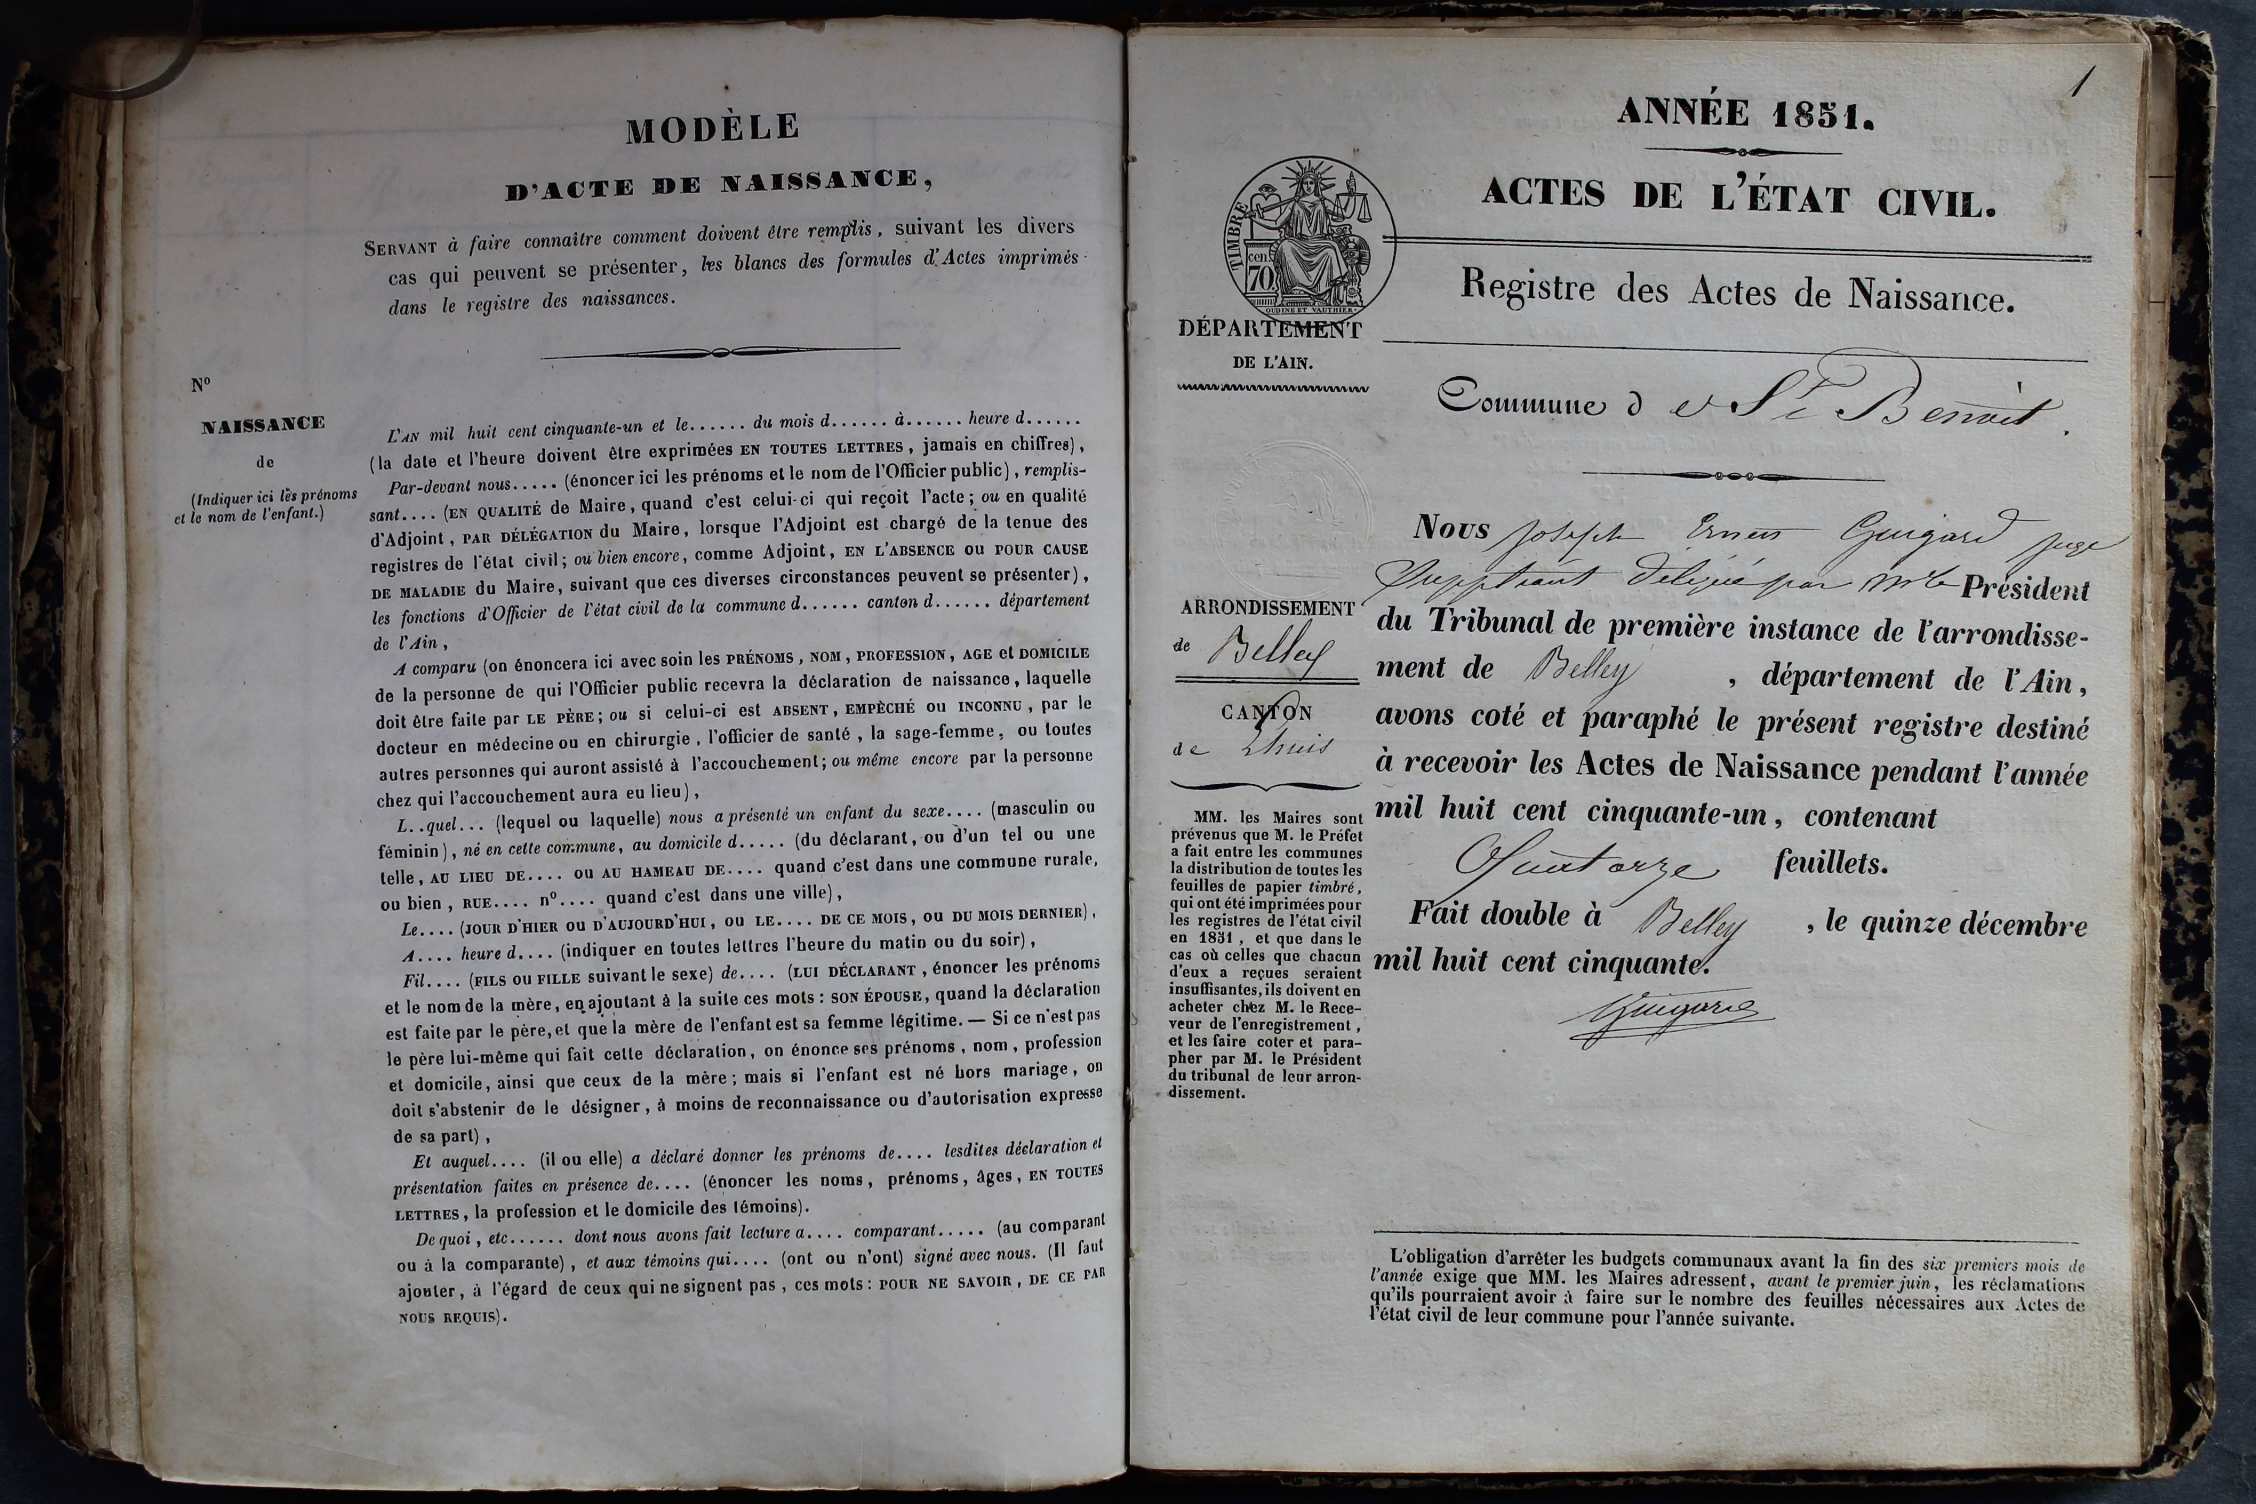 MODÈLE
D'ACTE DE NAISSANCE,
SERVANT à faire connaître comment doivent être remplis, suivant les divers
cas qui peuvent se présenter, les blancs des formules d'Actes imprimés
dans le registre des naissances.
N°
NAISSANCE
de
(Indiquer ici les prénoms
et le nom de l'enfant.)
L'AN mil huit cent cinquante-un et le...... du mois d...... à...... heure d......
(la date et l'heure doivent être exprimées EN TOUTES LETTRES, jamais en chiffres),
Par-devant nous..... (énoncer ici les prénoms et le nom de l'Officier public), remplis-
sant.... (EN QUALITÉ de Maire, quand c'est celui-ci qui reçoit l'acte; ou en qualité
d'Adjoint, PAR DÉLÉGATION du Maire, lorsque l'Adjoint est chargé de la tenue des
registres de l'état civil; ou bien encore, comme Adjoint, EN L'ABSENCE OU POUR CAUSE
DE MALADIE du Maire, suivant que ces diverses circonstances peuvent se présenter),
les fonctions d'Officier de l'état civil de la commune d...... canton d...... département
de l'Ain,
A comparu (on énoncera ici avec soin les PRÉNOMS, NOM, PROFESSION, AGE et DOMICILE
de la personne de qui l'Officier public recevra la déclaration de naissance, laquelle
doit être faite par LE PÈRE; ou si celui-ci est ABSENT, EMPÈCHÉ ou INCONNU, par le
docteur en médecine ou en chirurgie, l'officier de santé, la sage-femme, ou toutes
autres personnes qui auront assisté à l'accouchement; ou même encore par la personne
chez qui l'accouchement aura eu lieu),
L..quel... (lequel ou laquelle) nous a présenté un enfant du sexe.... (masculin ou
féminin), né en cette commune, au domicile d..... (du déclarant, ou d'un tel ou une
telle, AU LIEU DE.... OU AU HAMEAU DE.... quand c'est dans une commune rurale,
ou bien, RUE.... n°.... quand c'est dans une ville),
Le.... (JOUR D'HIER OU D'AUJOURD'HUI, OU LE.... DE CE MOIS, OU DU MOIS DERNIER),
A.... heure d.... (indiquer en toutes lettres l'heure du matin ou du soir),
Fil.... (FILS OU FILLE suivant le sexe) de.... (LUI DÉCLARANT, énoncer les prénoms
et le nom de la mère, en ajoutant à la suite ces mots: SON ÉPOUSE, quand la déclaration
est faite par le père, et que la mère de l'enfant est sa femme légitime. — Si ce n'est pas
le père lui-même qui fait cette déclaration, on énonce ses prénoms, nom, profession
et domicile, ainsi que ceux de la mère; mais si l'enfant est né hors mariage, on
doit s'abstenir de le désigner, à moins de reconnaissance ou d'autorisation expresse
de sa part),
Et auquel.... (il ou elle) a déclaré donner les prénoms de.... lesdites déclaration et
présentation faites en présence de.... (énoncer les noms, prénoms, âges, EN TOUTES
LETTRES, la profession et le domicile des témoins).
De quoi, etc...... dont nous avons fait lecture a.... comparant..... (au comparant
ou à la comparante), et aux témoins qui.... (ont ou n'ont) signé avec nous. (Il faut
ajouter, à l'égard de ceux qui ne signent pas, ces mots: POUR NE SAVOIR, DE CE PAR
NOUS REQUIS).
1
ANNÉE 1851.
ACTES DE L'ÉTAT CIVIL.
Registre des Actes de Naissance.
TIMBRE
cen.
70
OUDINE ET VAUTHIER
DÉPARTEMENT
DE L'AIN.
Commune de St Benoit.
Nous Joseph Ernest Guigard juge
Suppléant délégué par Mr le Président
du Tribunal de première instance de l'arrondisse-
ment de Belley, département de l'Ain,
avons coté et paraphé le présent registre destiné
à recevoir les Actes de Naissance pendant l'année
mil huit cent cinquante-un, contenant
Quatorze feuillets.
Fait double à Belley, le quinze décembre
mil huit cent cinquante.
Guigard
ARRONDISSEMENT
de Belley
CANTON
de Lhuis
MM. les Maires sont
prévenus que M. le Préfet
a fait entre les communes
la distribution de toutes les
feuilles de papier timbré,
qui ont été imprimées pour
les registres de l'état civil
en 1851, et que dans le
cas où celles que chacun
d'eux a reçues seraient
insuffisantes, ils doivent en
acheter chez M. le Rece-
veur de l'enregistrement,
et les faire coter et para-
pher par M. le Président
du tribunal de leur arron-
dissement.
L'obligation d'arrêter les budgets communaux avant la fin des six premiers mois de
l'année exige que MM. les Maires adressent, avant le premier juin, les réclamations
qu'ils pourraient avoir à faire sur le nombre des feuilles nécessaires aux Actes de
l'état civil de leur commune pour l'année suivante.